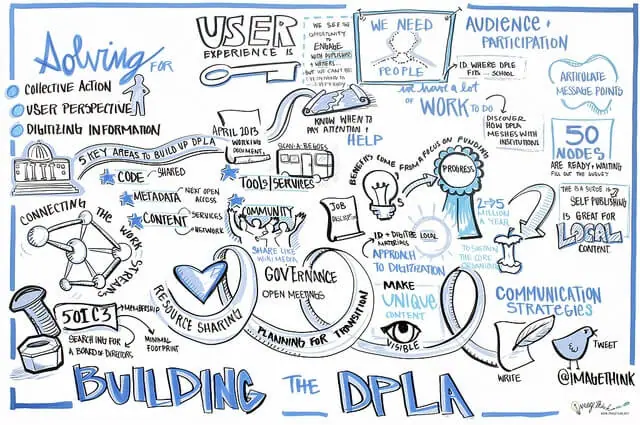 Solving FOR
COLLECTIVE ACTION
USER PERSPECTIVE
DIGITIZING INFORMATION
USER
EXPERIENCE IS
WE SEE THE
OPPORTUNITY TO
ENGAGE
WITH PUBLISHERS
+ WRITERS...
BUT WE CAN'T BE
KNOW WHEN TO
PAY ATTENTION +
HELP
WE NEED
PEOPLE
we have a lot
OF
WORK TO DO
AUDIENCE +
PARTICIPATION
ID WHERE DPLA
FITS ... SCHOOL
DISCOVER
HOW DPLA
MESHES WITH
INSTITUTIONS
ARTICULATE
MESSAGE POINTS
50
NODES
ARE READY + WAITING
FILL OUT THE SURVEY
5 KEY AREAS TO BUILD UP DPLA
APRIL 2013
WORKING
DOCUMENT
SCAN-A-BEGOES
CODE
SHARED
METADATA
NEXT OPEN
ACCESS
CONTENT
SERVICES
NETWORK
TOOLS/SERVICES
COMMUNITY
SHARE LIKE
WIKIMEDIA
JOB
DESCRIPTION
BENEFITS COME FROM A FOCUS ON FUNDING
PROGRESS
2→5
MILLION
A YEAR
TO SUSTAIN
THE CORE
SELF PUBLISHING
IS GREAT FOR
LOCAL
CONTENT
CONNECTING THE WORK STREAMS
RESOURCE SHARING
GOVERNANCE
OPEN MEETINGS
PLANNING FOR TRANSITION
ID + DIGITIZE LOCAL
MATERIALS
APPROACH
TO DIGITIZATION
MAKE
UNIQUE
CONTENT
VISIBLE
COMMUNICATION
STRATEGIES
WRITE
TWEET
@IMAGETHINK
501C3
MEMBERSHIP
SEARCHING FOR
A BOARD OF DIRECTORS
MINIMAL
FOOTPRINT
BUILDING THE DPLA